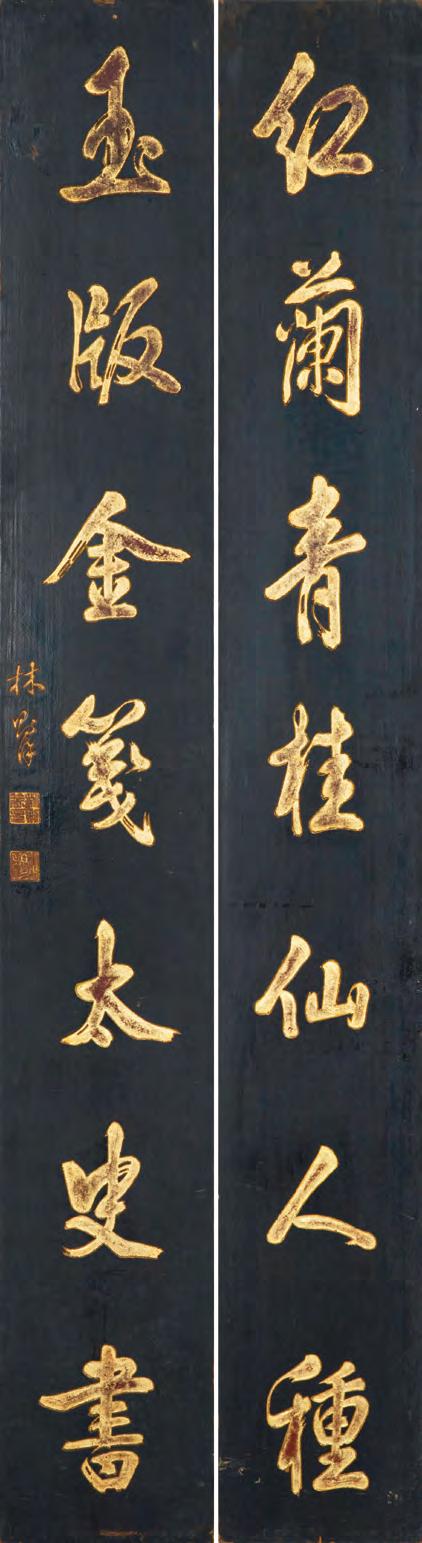 紅蘭青桂仙人種
玉版金箋太史書
林